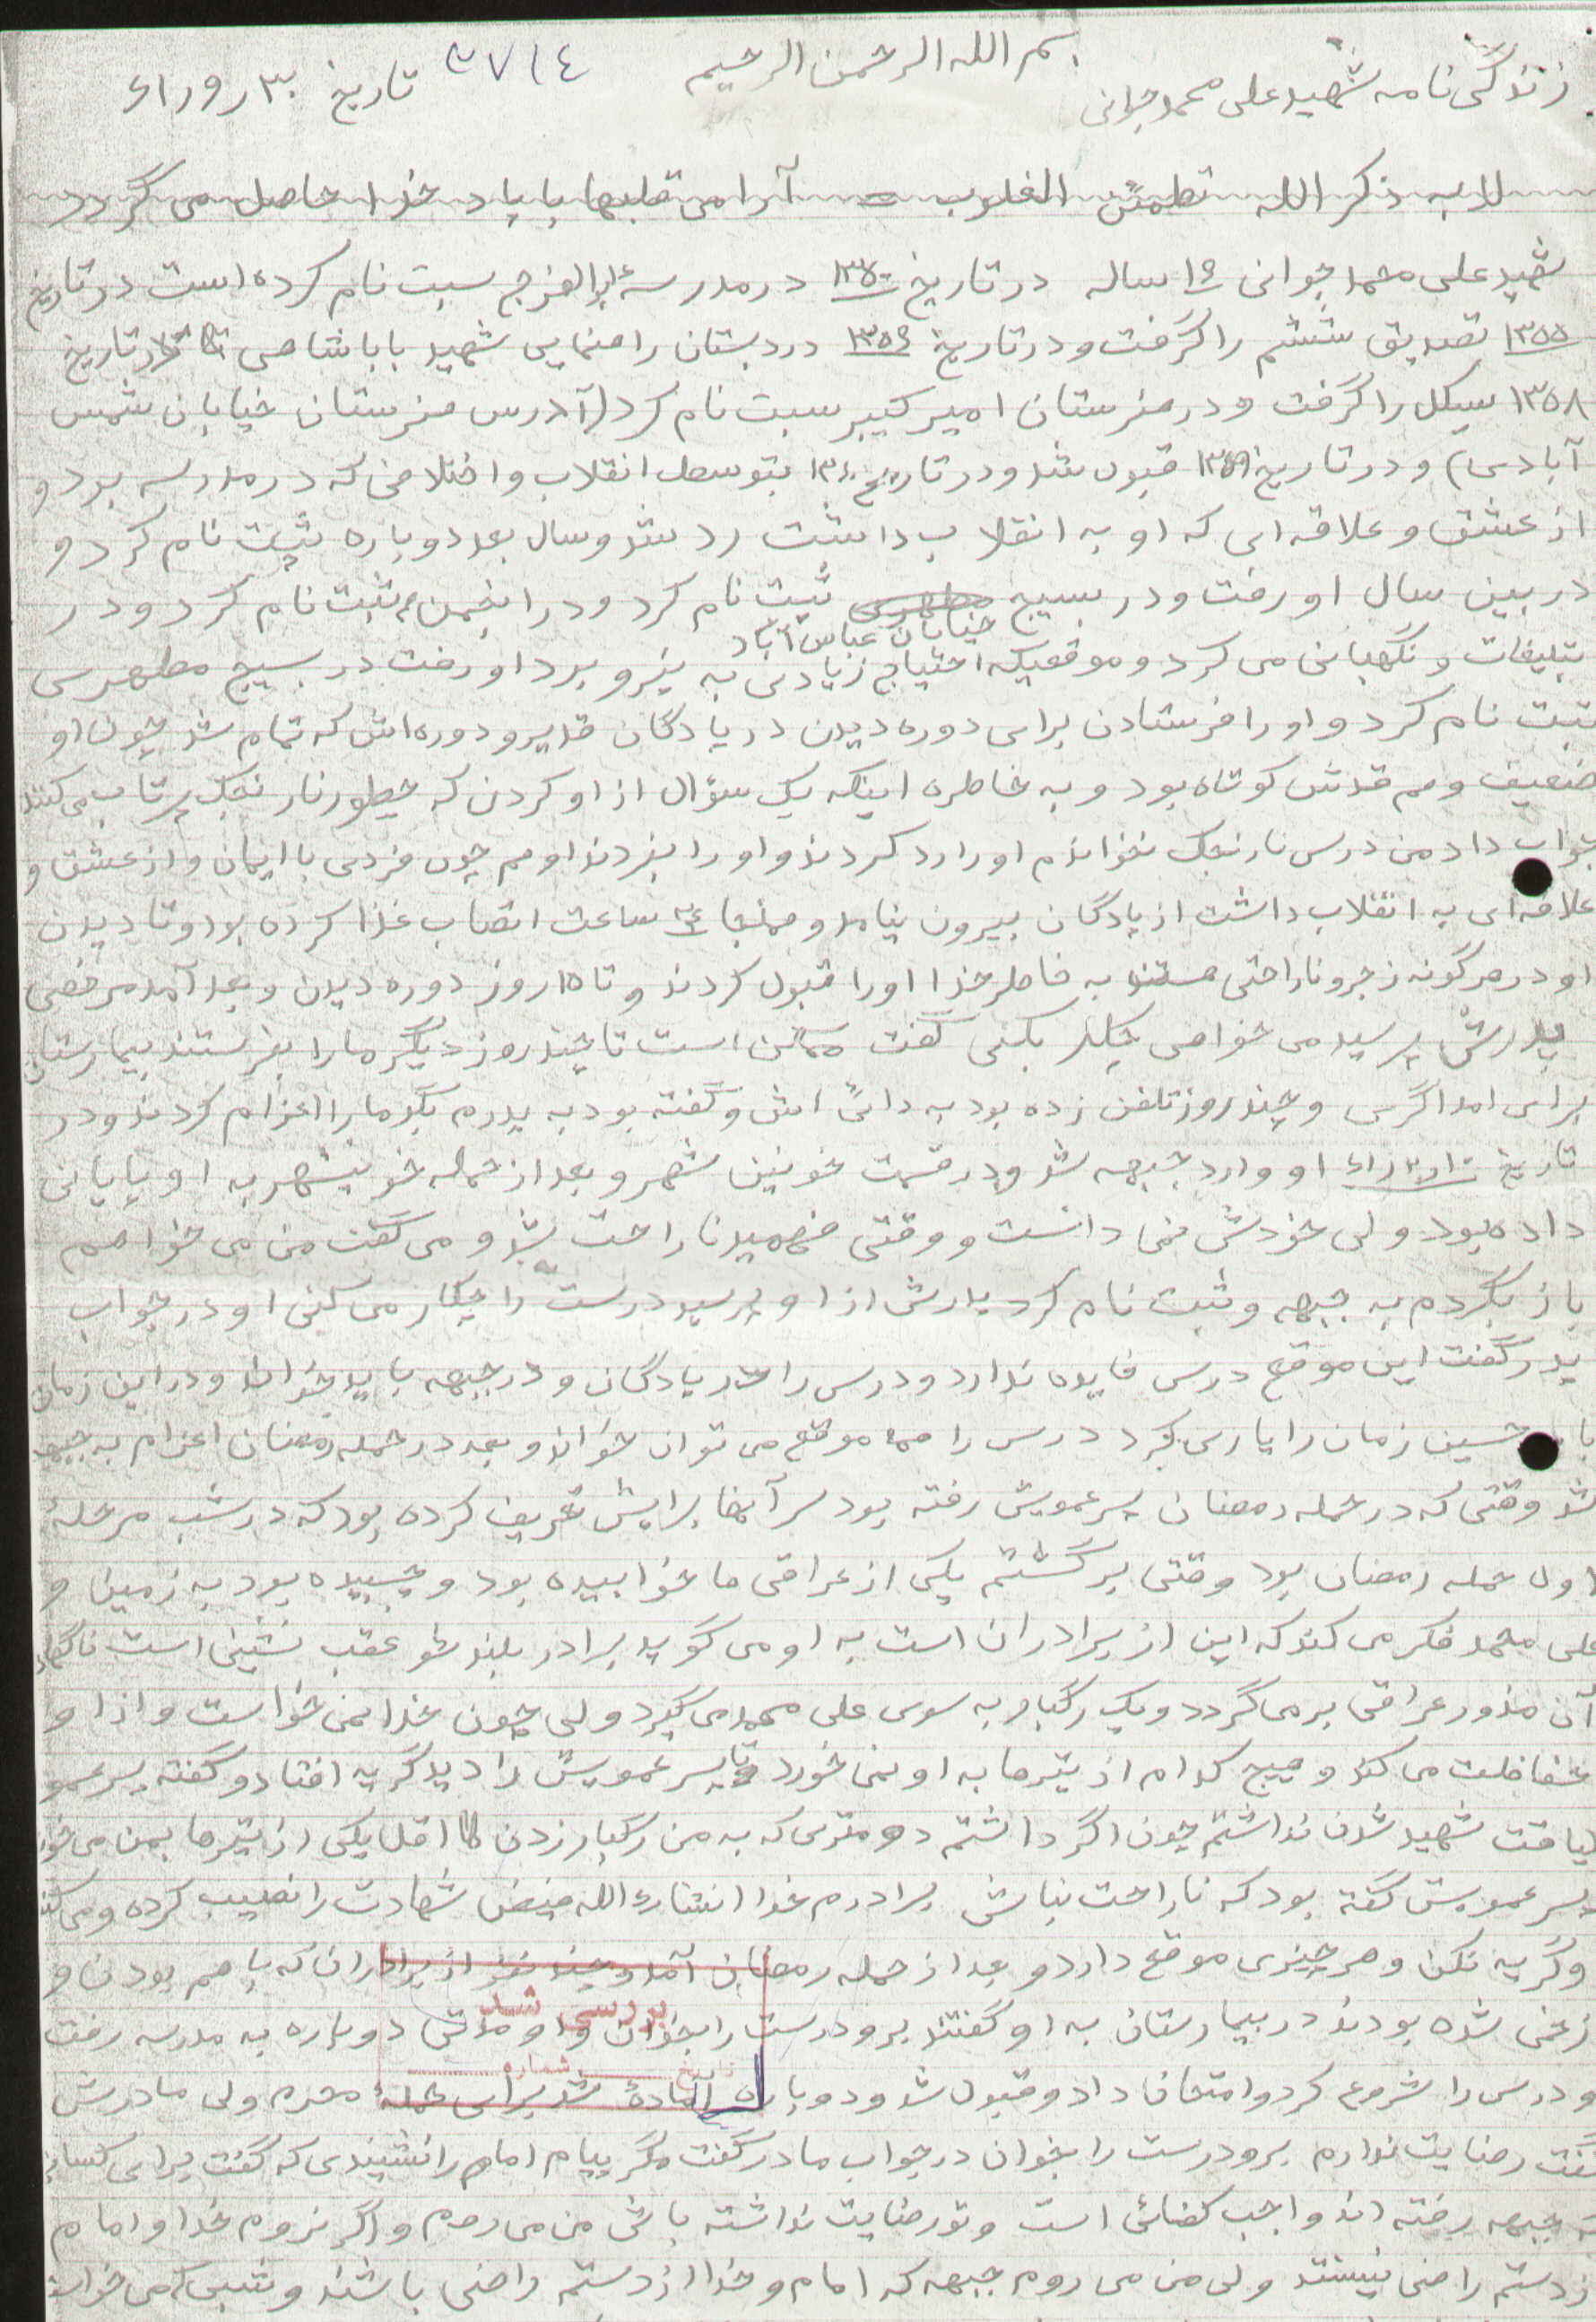 بسم الله الرحمن الرحیم
۳۷۱٤
زندگی نامه شهید علی محمد جوانی
تاریخ ۳۰ ر ۹ ر ۶۱
لا به ذکر الله تطمئن القلوب = آرامی قلبها با یاد خدا حاصل می گردد
شهید علی محمد جوانی ۱۶ ساله در تاریخ ۱۳۵۰ در مدرسهٔ ابوالفرج سبت نام کرده است در تاریخ
۱۳۵۵ تصدیق ششم را گرفت و در تاریخ ۱۳۵۶ در دبستان راهنمایی شهید باباشاهی تا در تاریخ
۱۳۵۸ سیکل را گرفت و در هنرستان امیر کبیر سبت نام کرد (آدرس هنرستان خیابان شمس
آبادی) و در تاریخ ۱۳۵۹ قبول شد و در تاریخ ۱۳۶۰ بتوسط انقلاب و اختلاصی که در مدرسه بود و
از عشق و علاقه ای که او به انقلاب داشت رد شد و سال بعد دوباره ثبت نام کرد و
در بین سال او رفت و در بسیج مطهری ثبت نام کرد و در انجمن هم ثبت نام کرد و در
خیابان عباس آباد
تبلیغات و نگهبانی می کرد و موقعیکه احتیاج زیادی به نیرو بود او رفت در بسیج مطهری
ثبت نام کرد و او را فرستادن برای دوره دیدن در پادگان قدیر و دوره اش که تمام شد چون او
ضعیف و هم قدش کوتاه بود و به خاطره اینکه یک سؤال از او کردن که چطور نارنجک پرتاب می کنند
جواب داد من درس نارنجک نخواندم او را رد کردند و او را نبردند او هم چون فردی با ایمان و از عشق و
علاقه ای به انقلاب داشت از پادگان بیرون نیامد و همانجا ۲۴ ساعت اعتصاب غذا کرده بود و تا دیدن
او در هر گونه زجر و ناراحتی هستند به خاطر خدا او را قبول کردند و تا ۱۵ روز دوره دیدن و بعد آمد مرخصی
پدرش پرسید می خواهی چکار بکنی گفت ممکن است تا چند روز دیگر ما را بفرستند بیمارستان
برای امداگری و چند روز تلفن زده بود به دائی اش و گفته بود به پدرم بگو ما را اعزام کردند و در
تاریخ ۱۰ ر ۳ ر ۶۱ او وارد جبهه شد و در قسمت خونین شهر و بعد از حمله خونینشهر به او پایانی
داده بود ولی خودش نمی دانست و وقتی فهمید ناراحت شد و می گفت من می خواهم
باز بگردم به جبهه و ثبت نام کرد پدرش از او پرسید درست را چکار می کنی او در جواب
پدر گفت این موقع درس فایده ندارد و درس را در پادگان و در جبهه باید خواند و در این زمان
باید حسین زمان را یاری کرد درس را همه موقع می توان خواند و بعد در حمله رمضان اعزام به جبهه
شد وقتی که در حمله رمضان پسر عمویش رفته بود سر آنها برایش تعریف کرده بود که در شب مرحلهٔ
اول حمله رمضان بود وقتی برگشتم یکی از عراقی ها خوابیده بود و چسبیده بود به زمین و
علی محمد فکر می کند که این از برادران است به او می گوید برادر بلند شو عقب نشینی است ناگهان
آن مزدور عراقی برمی گردد و یک رگبار به سوی علی محمد می گیرد ولی چون خدا نمی خواست و از او
حفاظت می کند و هیچ کدام از تیرها به او نمی خورد تا پسر عمویش را دید گریه افتاد و گفته پسر عمو
لیاقت شهید شدن نداشتم چون اگر داشتم دو متری که به من رگبار زدن لااقل یکی از تیرها بمن می خورد
پسر عمویش گفته بود که ناراحت نباش برادرم خدا انشاءالله فیض شهادت را نصیب کرده و می کند
و گریه نکن و هر چیزی موقع دارد و بعد از حمله رمضان آمد و چند نفر از برادران که با هم بودن و
زخمی شده بودند در بیمارستان به او گفتند برو درست را بخوان و او مدتی دوباره به مدرسه رفت
بررسی شد
تاریخ شماره
و درس را شروع کرد و امتحان داد و قبول شد و دوباره آماده شد برای حملهٔ محرم ولی مادرش
گفت رضایت ندارم برو درست را بخوان در جواب مادر گفت مگر پیام امام را نشنیدی که گفت برای کسانی
که جبهه رفته اند واجب کفائی است و تو رضایت نداشته باشی من می روم و اگر نروم خدا و امام
از دستم راضی نیستند ولی من می روم جبهه که امام و خدا از دستم راضی باشند و شبی که می خواست